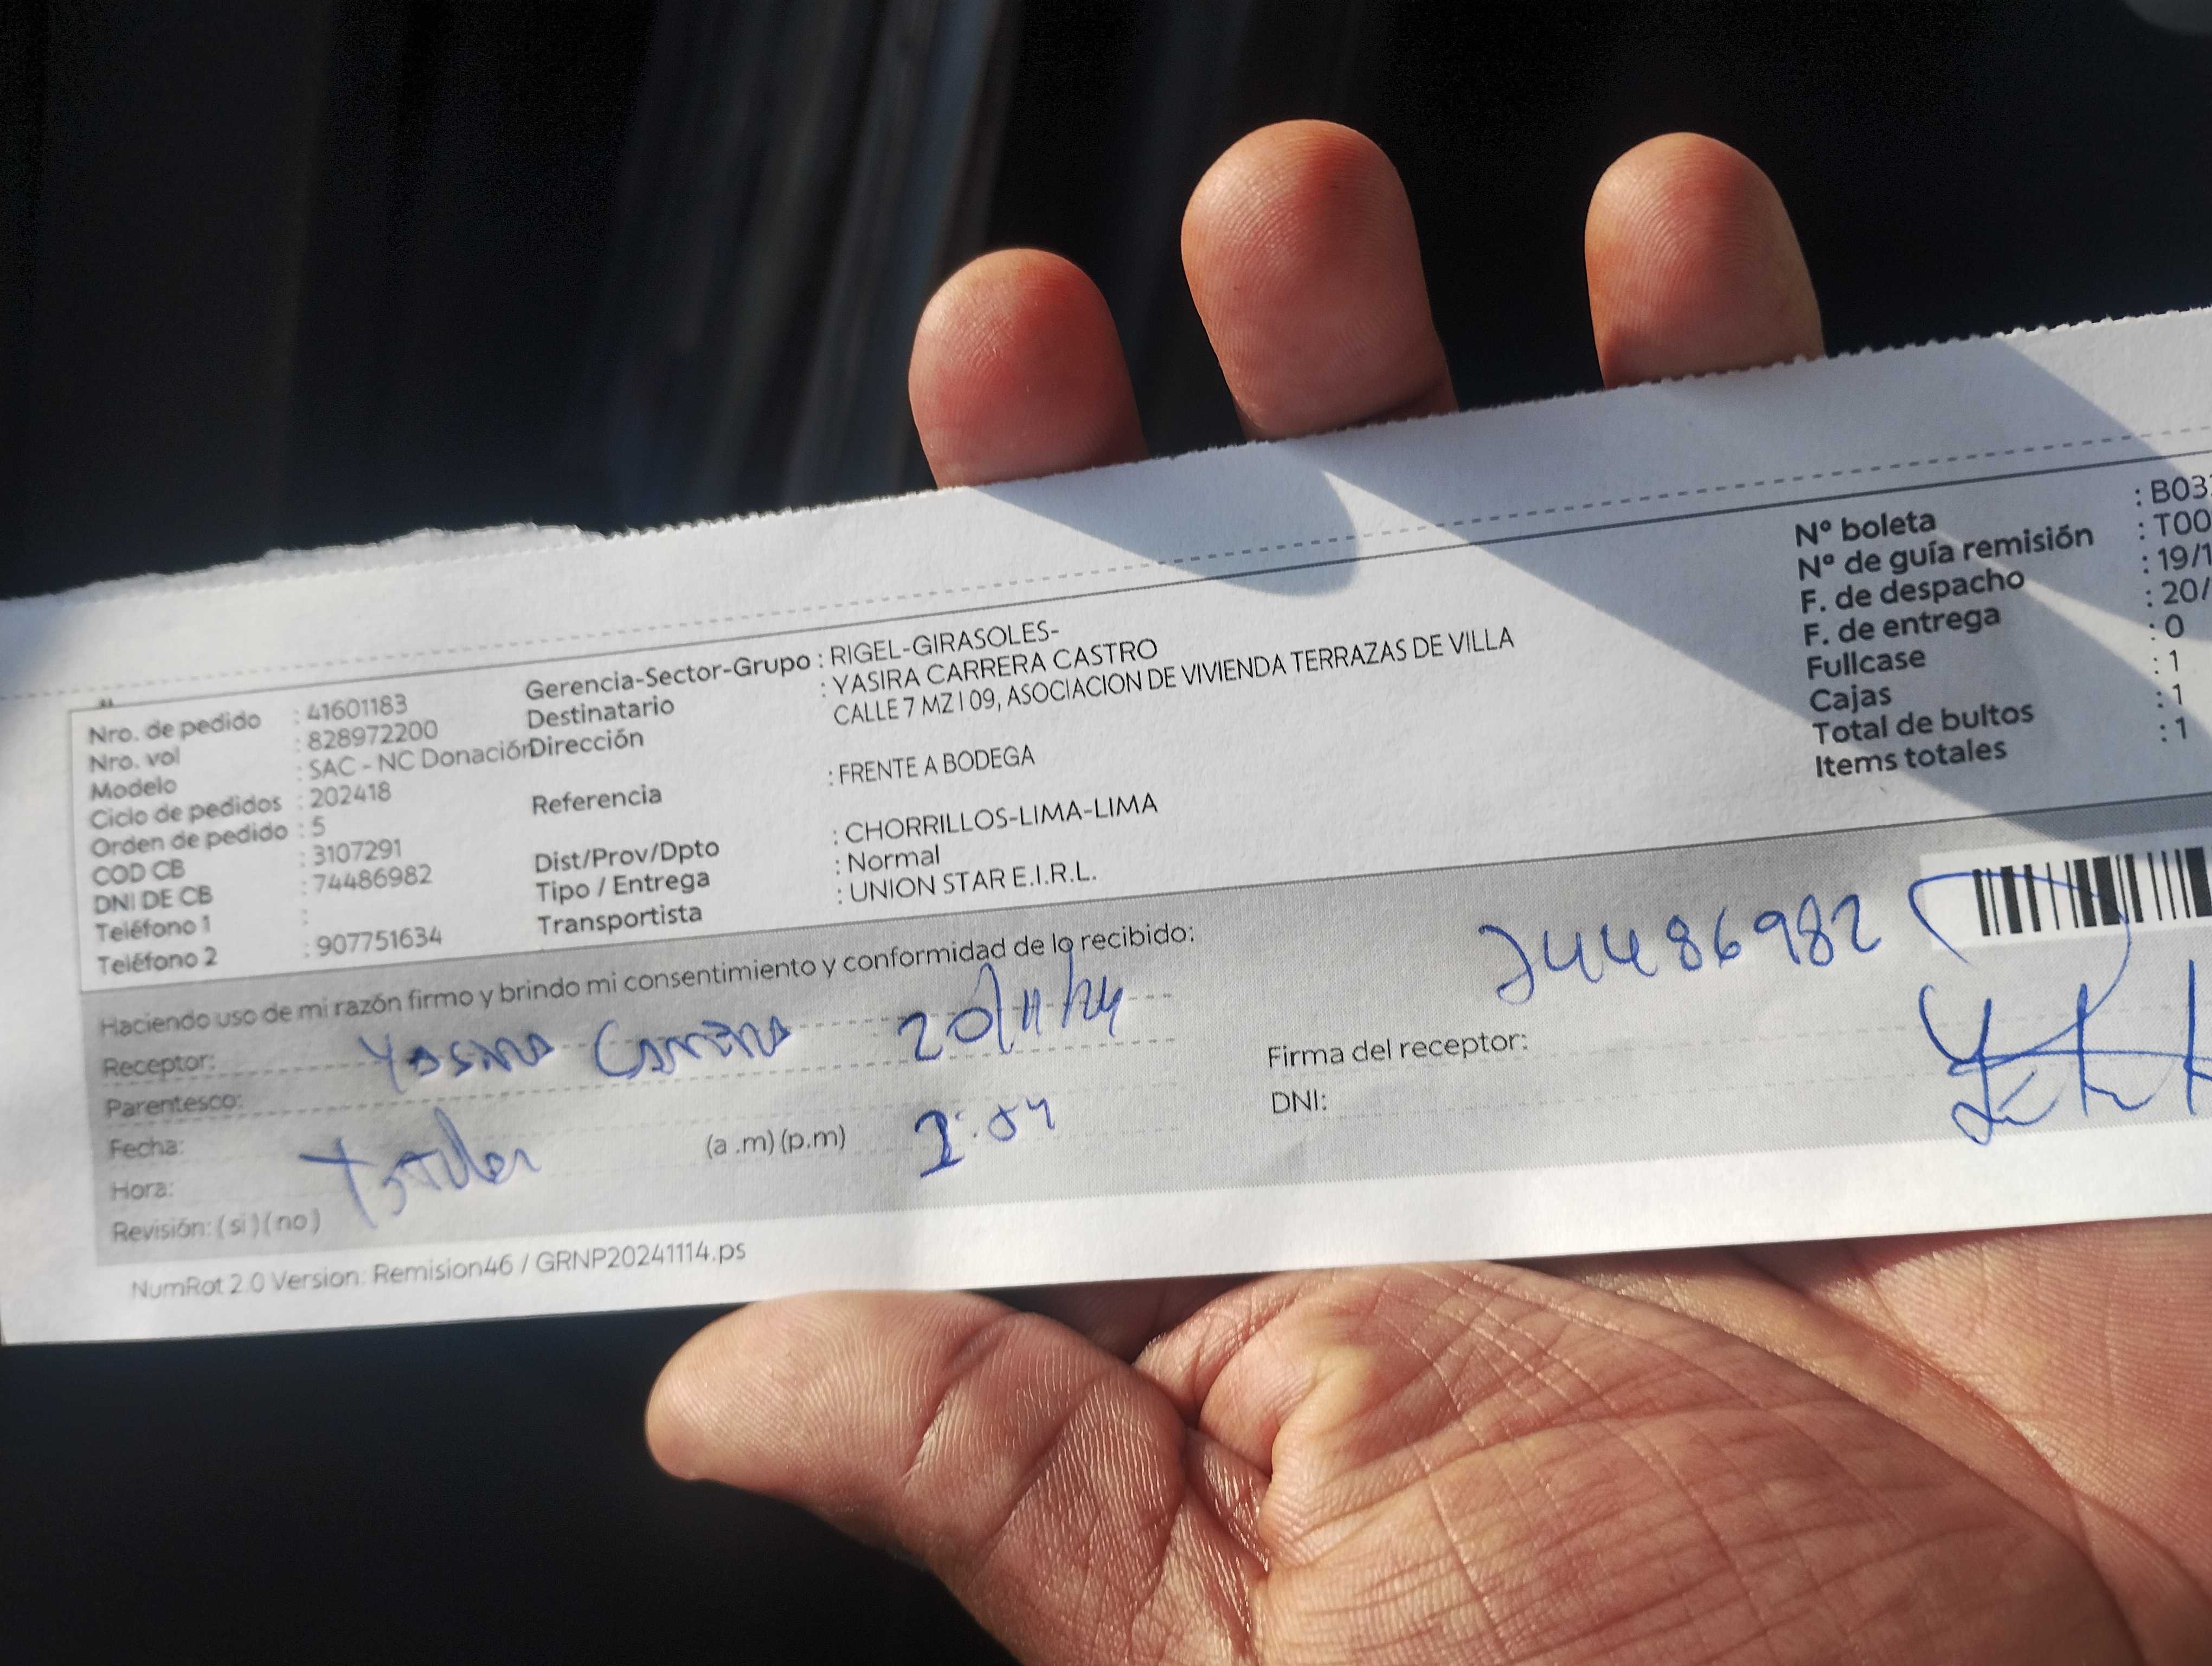 Nro. de pedido : 41601183
Nro. vol : 828972200
Modelo : SAC - NC Donación
Ciclo de pedidos : 202418
Orden de pedido : 5
COD CB : 3107291
DNI DE CB : 74486982
Teléfono 1 :
Teléfono 2 : 907751634
Gerencia-Sector-Grupo : RIGEL-GIRASOLES-
Destinatario : YASIRA CARRERA CASTRO
Dirección CALLE 7 MZ I 09, ASOCIACION DE VIVIENDA TERRAZAS DE VILLA
Referencia : FRENTE A BODEGA
Dist/Prov/Dpto : CHORRILLOS-LIMA-LIMA
Tipo / Entrega : Normal
Transportista : UNION STAR E.I.R.L.
N° boleta : B03
N° de guía remisión : T00
F. de despacho : 19/1
F. de entrega : 20/
Fullcase : 0
Cajas : 1
Total de bultos : 1
Items totales : 1
Haciendo uso de mi razón firmo y brindo mi consentimiento y conformidad de lo recibido:
Receptor: Yasira Carrera 20/11/24
Parentesco:
Fecha:
Hora: (a .m) (p.m)
Revisión: ( si ) ( no )
74486982
Firma del receptor:
DNI:
NumRot 2.0 Version: Remision46 / GRNP20241114.ps